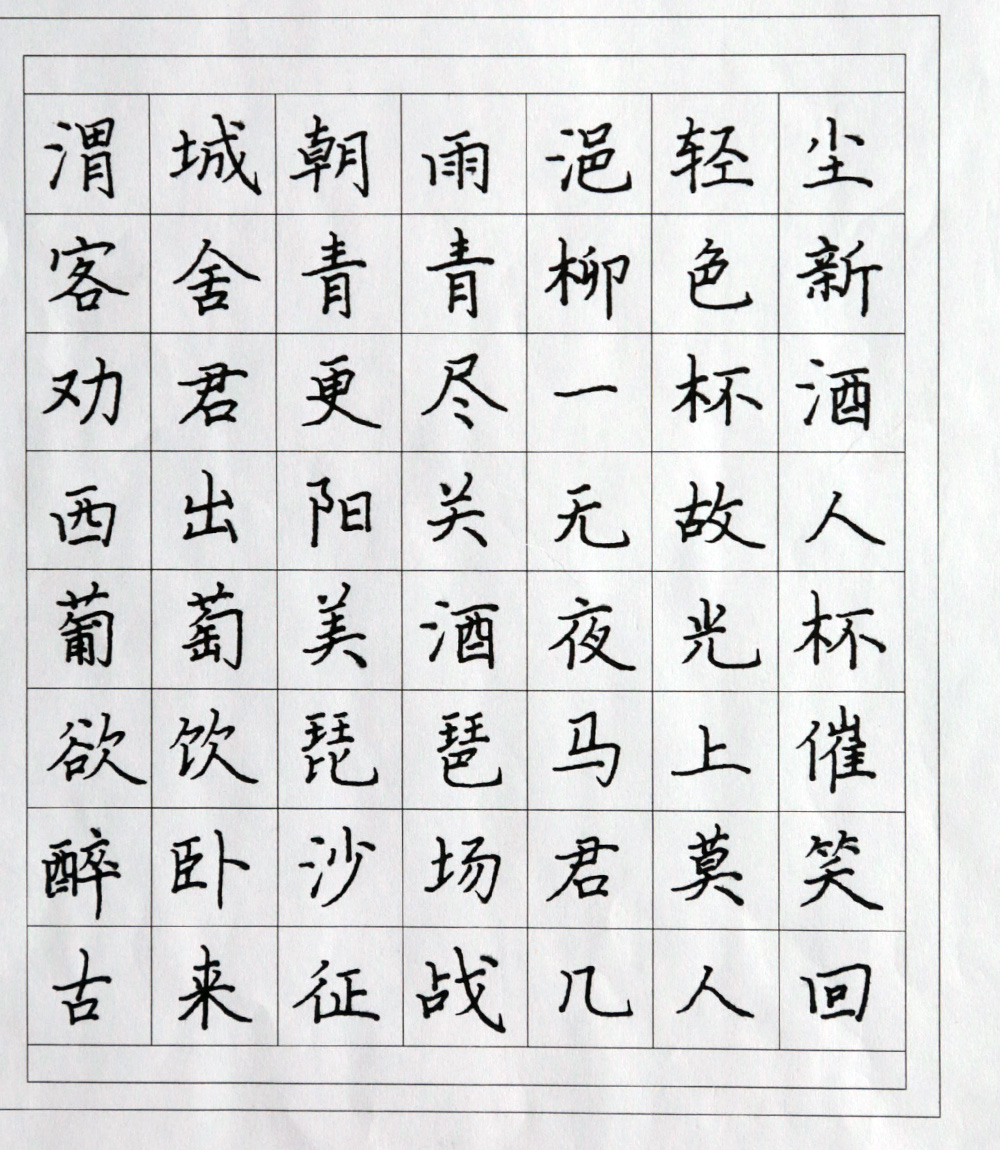 渭城朝雨浥轻尘
客舍青青柳色新
劝君更尽一杯酒
西出阳关无故人
葡萄美酒夜光杯
欲饮琵琶马上催
醉卧沙场君莫笑
古来征战几人回